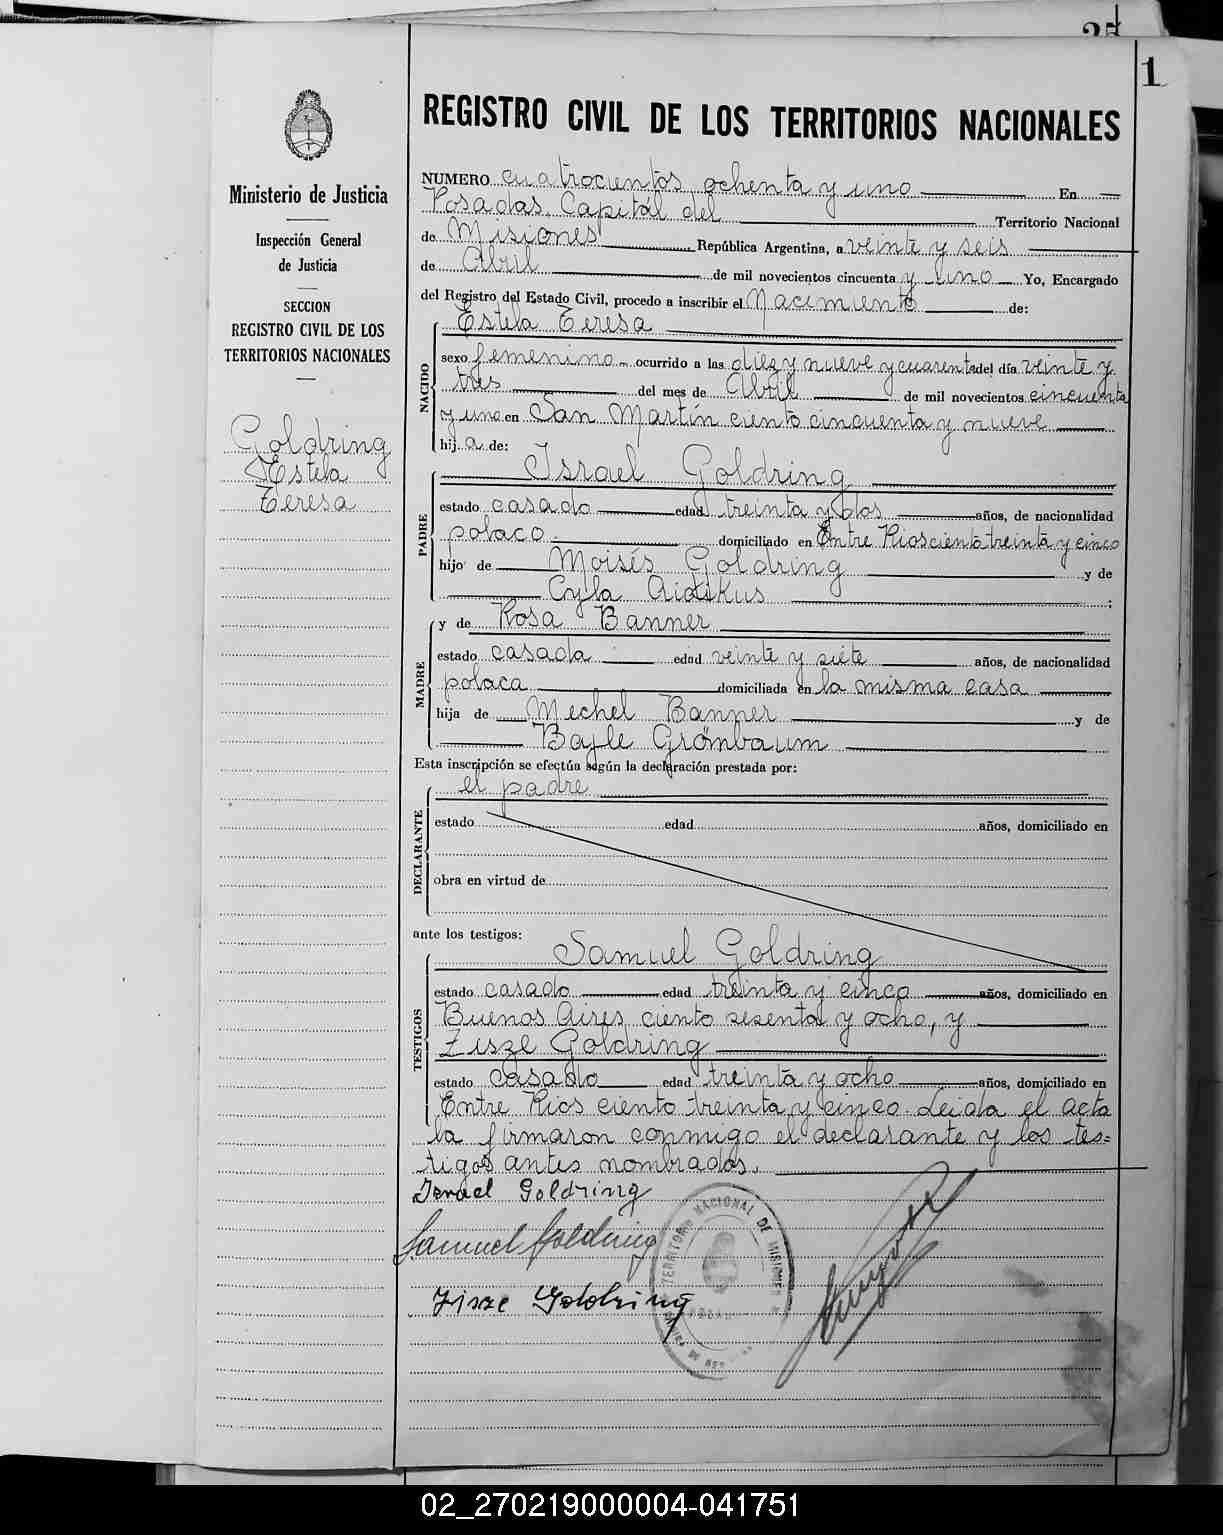 25
1
REGISTRO CIVIL DE LOS TERRITORIOS NACIONALES
Ministerio de Justicia
Inspección General
de Justicia
SECCION
REGISTRO CIVIL DE LOS
TERRITORIOS NACIONALES
Goldring
Estela
Teresa
NUMERO cuatrocientos ochenta y uno En
Posadas, Capital del Territorio Nacional
de Misiones República Argentina, a veinte y seis
de Abril de mil novecientos cincuenta y uno Yo, Encargado
del Registro del Estado Civil, procedo a inscribir el Nacimiento de:
NACIDO
Estela Teresa
sexo femenino ocurrido a las diez y nueve y cuarenta del día veinte y
tres del mes de Abril de mil novecientos cincuenta
y uno en San Martín ciento cincuenta y nueve
hija de:
PADRE
Israel Goldring
estado casado edad treinta y dos años, de nacionalidad
polaco domiciliado en Entre Rios ciento treinta y cinco
hijo de Moisés Goldring y de
Cyla Aidikus ;
MADRE
y de Rosa Banner
estado casada edad veinte y siete años, de nacionalidad
polaca domiciliada en la misma casa
hija de Mechel Banner y de
Bajle Grömbaum
Esta inscripción se efectúa según la declaración prestada por:
DECLARANTE
el padre
estado edad años, domiciliado en
obra en virtud de
ante los testigos:
TESTIGOS
Samuel Goldring
estado casado edad treinta y cinco años, domiciliado en
Buenos Aires ciento sesenta y ocho, y
Zisze Goldring
estado casado edad treinta y ocho años, domiciliado en
Entre Rios ciento treinta y cinco. Leida el acta
la firmaron conmigo el declarante y los tes=
tigos antes nombrados.
Israel Goldring
Samuel Goldring
Zisze Goldring
TERRITORIO NACIONAL DE MISIONES
02_270219000004-041751